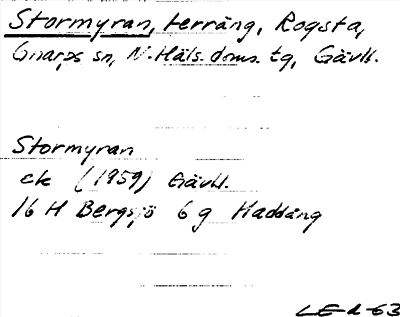 Stormyran, terräng, Rogsta,
Gnarps sn, N. Häls. doms. tg, Gävll.
Stormyran
ek (1959) Gävll.
16 H Bergsjö 6 g Haddäng